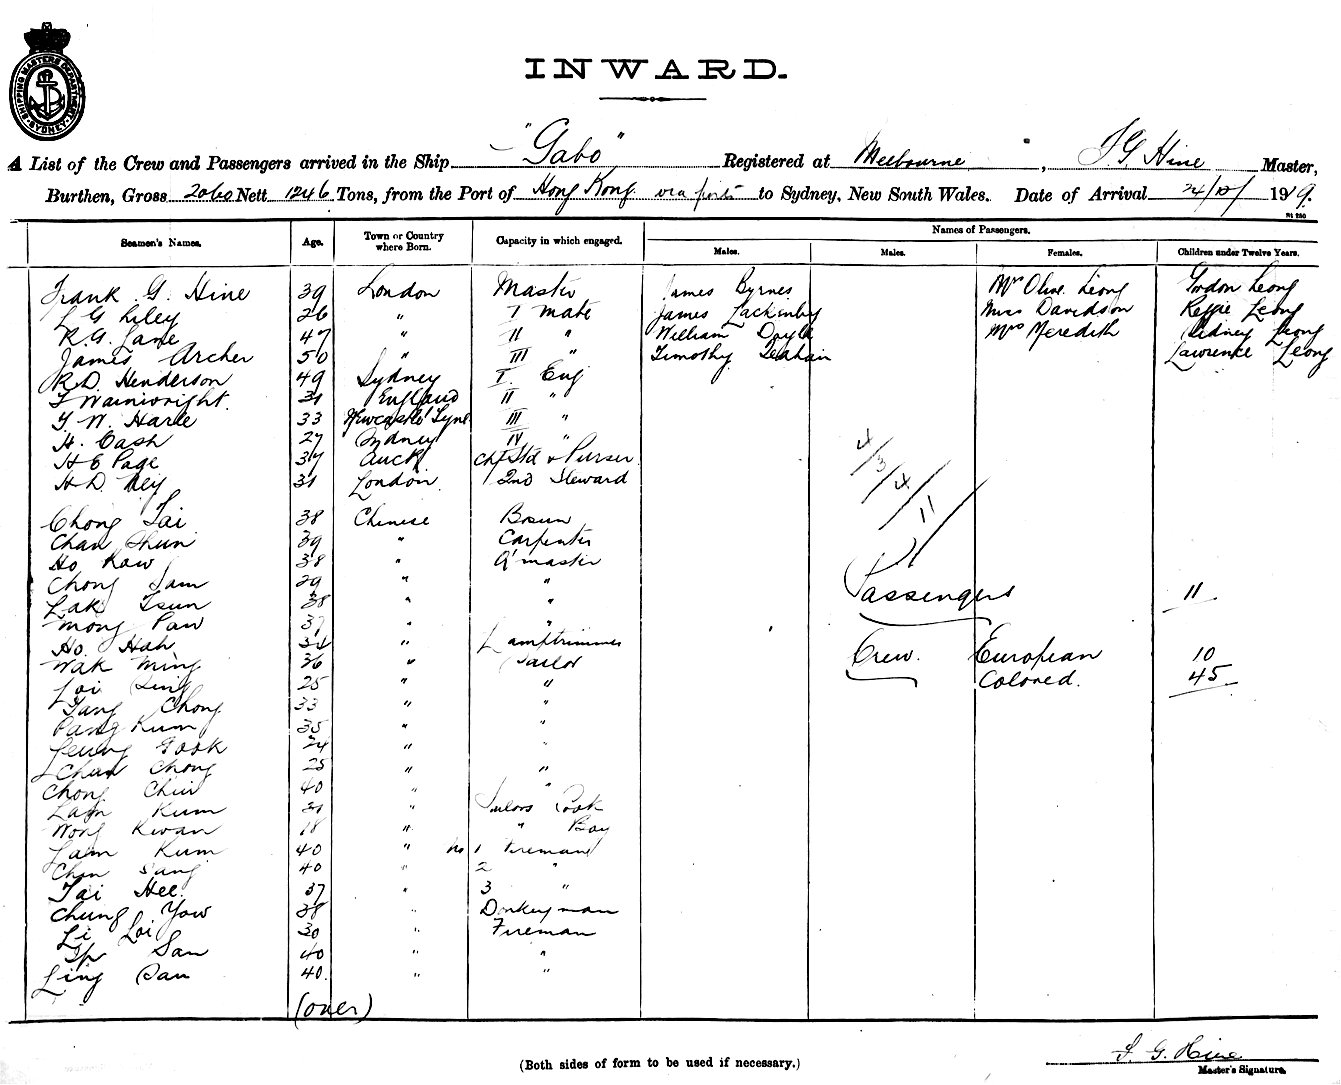 SHIPPING MASTERS DEPARTMENT SYDNEY
INWARD.
A List of the Crew and Passengers arrived in the Ship "Gabo" Registered at Melbourne, F G Hine Master,
Burthen, Gross 2060 Nett 1246 Tons, from the Port of Hong Kong via ports to Sydney, New South Wales. Date of Arrival 24/12/ 1919.
Seamen's Names. Age. Town or Country where Born. Capacity in which engaged. Names of Passengers.
Males. Males. Females. Children under Twelve Years.
Frank G. Hine 39 London Master James Byrnes Mrs Olive Leong Gordon Leong
L G Liley 26 " I Mate James Lackenby Miss Davidson Reggie Leong
R.G. Lane 47 " II " William Doyle Mrs Meredith Sidney Leong
James Archer 50 " III " Timothy Lawrence Leong
R.D. Henderson 49 Sydney I. Eng
Wainwright. 31 England II "
W. Harle 33 Newcastle Tyne III "
H. Cash 27 Sydney IV "
H E Page 37 Auck Chf Std & Purser
H D. Ney 31 London. 2nd Steward
4/3/4/11
Chong Tai 38 Chinese Bosun
Chan Shun 39 " Carpenter
Ho Kow 38 " Q'master
Chong Sam 29 " "
Passengers 11
Lak Tsun 38 " "
Mong Paw 37 " "
Ho. Hah 34 " Lamptrimmer
Wak Ming 36 " Sailor
Crew. European 10
Loi 25 " "
Colored. 45
Tang Chong 33 " "
Pang Kum 35 " "
Leung Gook 24 " "
Chan Chong 25 " "
Chong Chiu 40 " "
Lam Kum 31 " Sailors Cook
Wong Kwan 18 " " Boy
Lam Kum 40 " No 1 Fireman
Chan Sang 40 " 2 "
Tai Hee. 37 " 3 "
Chung Yow 38 " Donkeyman
Li Loi 30 " Fireman
Ip San 40 " "
Ling San 40. " "
(over)
F. G. Hine
(Both sides of form to be used if necessary.)
Master's Signature.